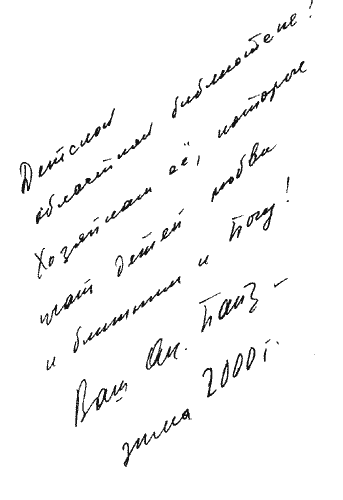 Детской
областной библиотеке!
Хозяйкам её, которые
учат детей любви
к ближним и Богу!
Ваш Ан.
зима 2000 г.